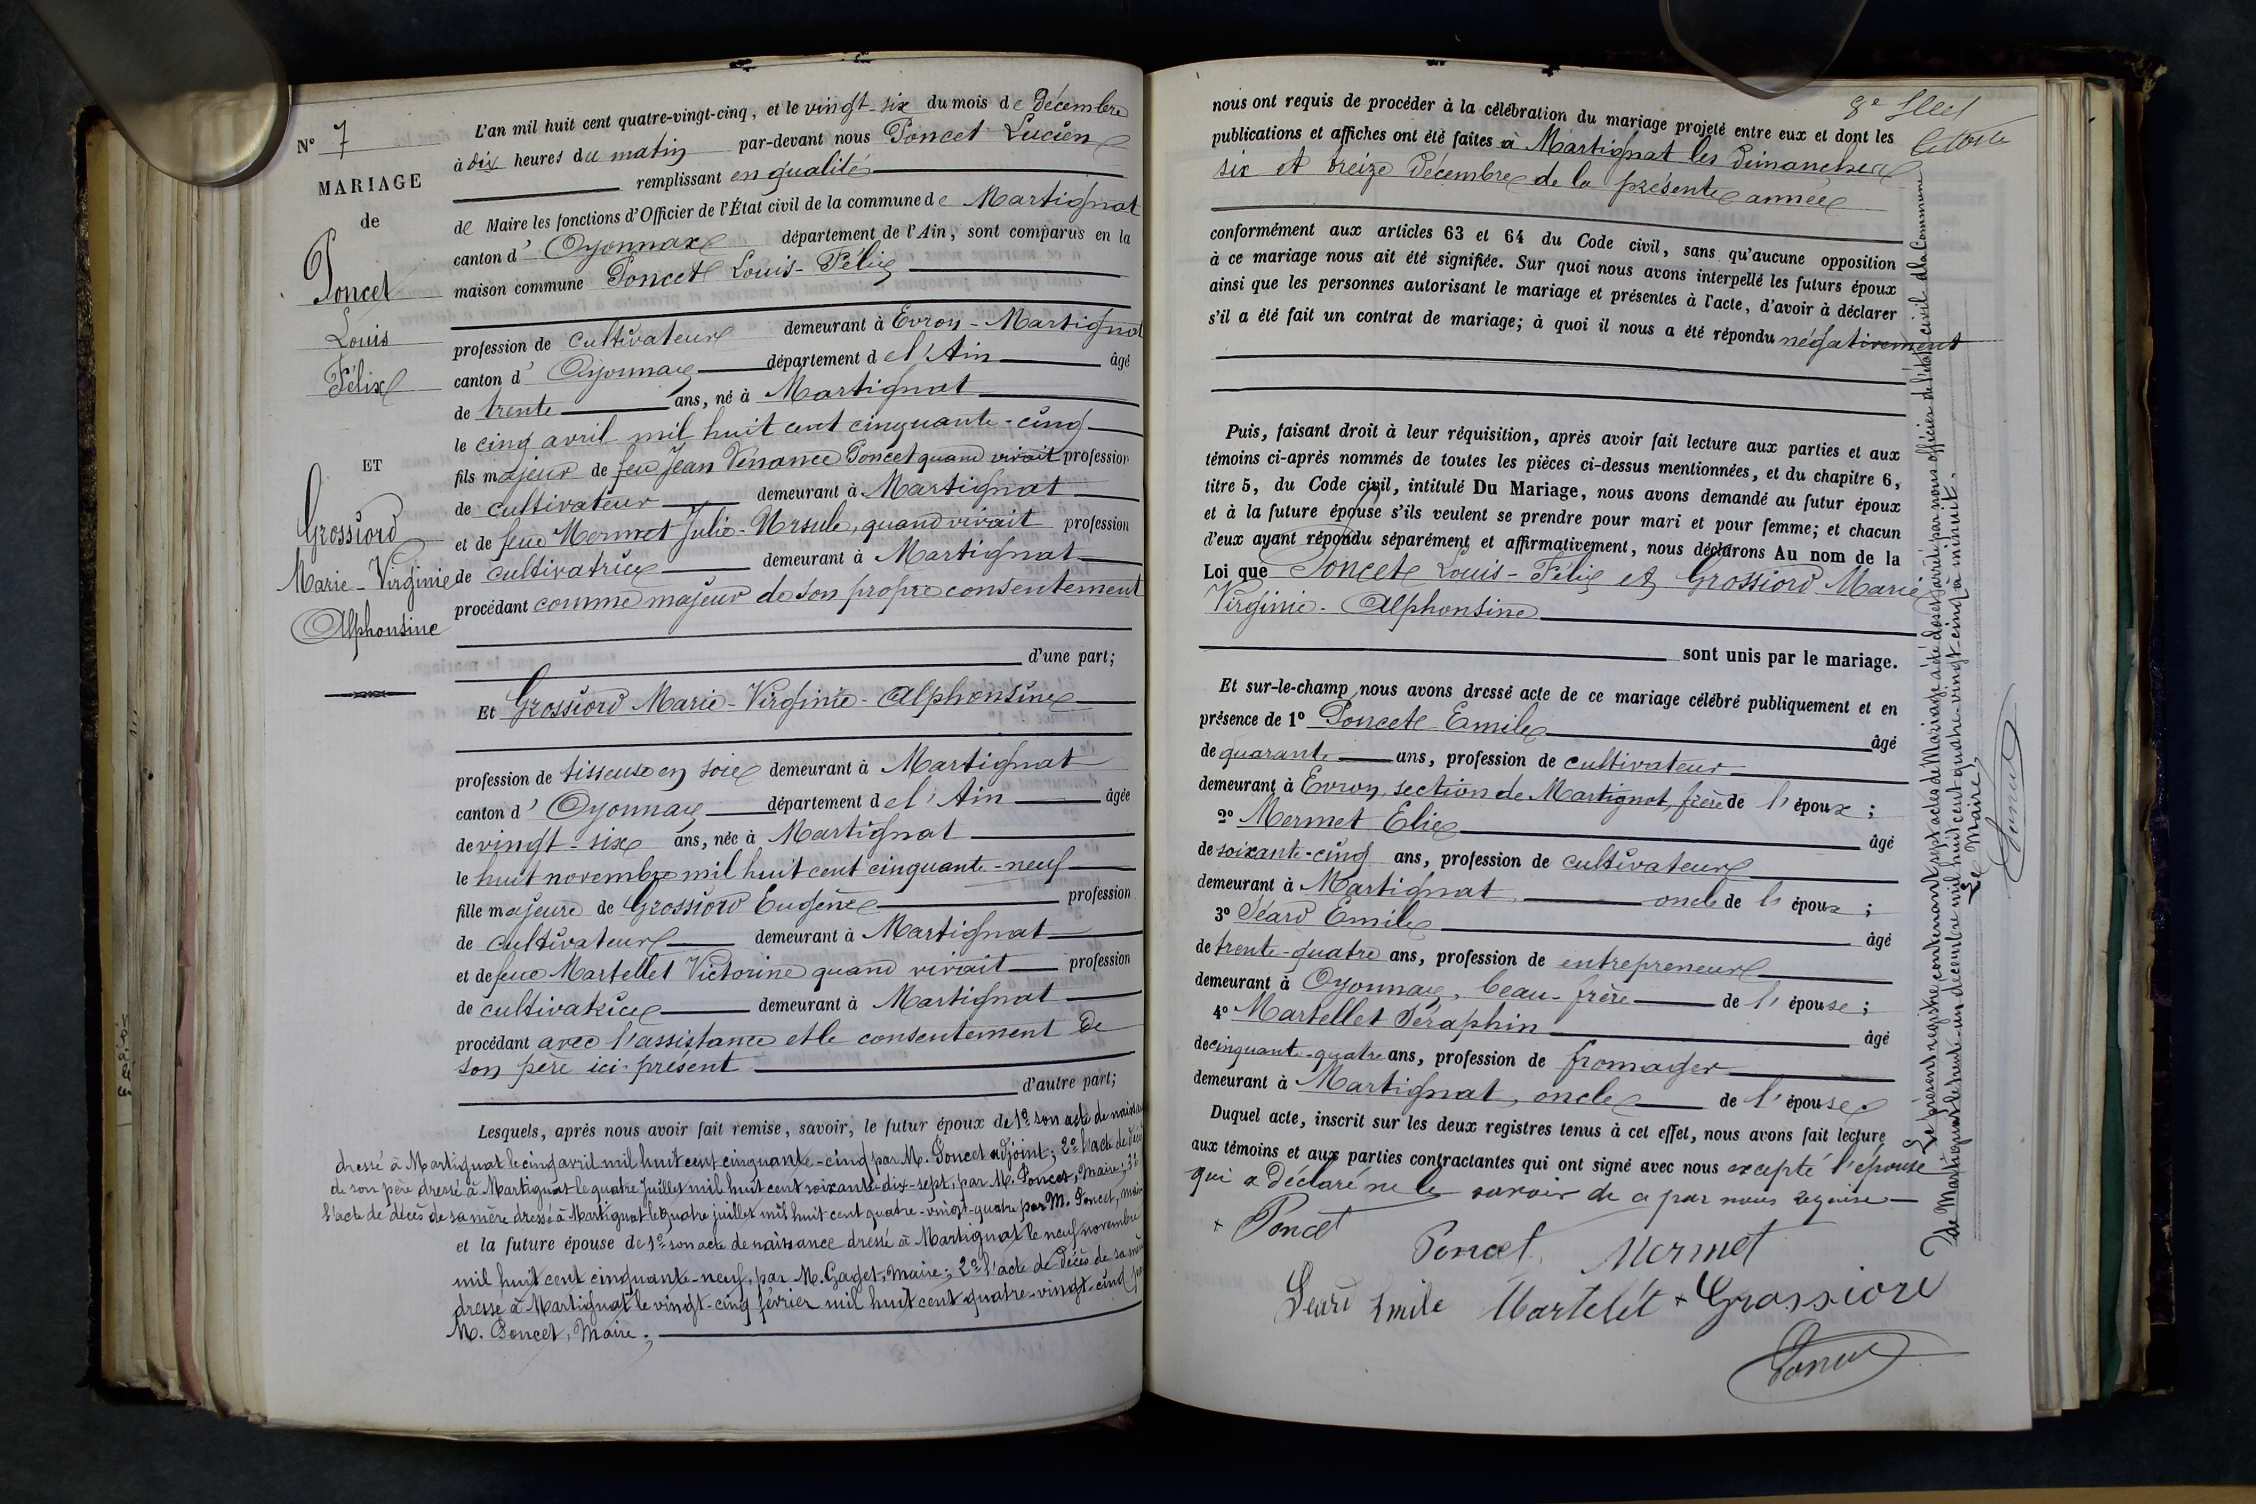 N° 7
MARIAGE
de
Poncet
Louis
Félix
ET
Grossiord
Marie-Virginie
Alphonsine
L'an mil huit cent quatre-vingt-cinq, et le vingt-six du mois de Décembre
à dix heures du matin par-devant nous Poncet Lucien
remplissant en qualité
de Maire les fonctions d'Officier de l'État civil de la commune de Martignat
canton d' Oyonnax département de l'Ain, sont comparus en la
maison commune Poncet Louis-Félix
profession de cultivateur demeurant à Evron-Martignat
canton d' Oyonnax département de l'Ain âgé
de trente ans, né à Martignat
le cinq avril mil huit cent cinquante-cinq
fils majeur de feu Jean Venance Poncet quand vivait profession
de cultivateur demeurant à Martignat
et de feue Mermet Julie-Ursule, quand vivait profession
de cultivatrice demeurant à Martignat
procédant comme majeur de son propre consentement
d'une part;
Et Grossiord Marie-Virginie-Alphonsine
profession de tisseuse en soie demeurant à Martignat
canton d' Oyonnax département de l'Ain âgée
de vingt-six ans, née à Martignat
le huit novembre mil huit cent cinquante-neuf
fille majeure de Grossiord Eugène profession
de cultivateur demeurant à Martignat
et de feue Martellet Victorine quand vivait profession
de cultivatrice demeurant à Martignat
procédant avec l'assistance et le consentement de
son père ici présent
d'autre part;
Lesquels, après nous avoir fait remise, savoir, le futur époux de 1° son acte de
dressé à Martignat le cinq avril mil huit cent cinquante-cinq par M. Poncet adjoint; 2° l'acte de
de son père dressé à Martignat le quatre Juillet mil huit cent soixante-dix-sept, par M. Poncet, Maire; 3°
l'acte de décès de sa mère dressé à Martignat le quatre juillet mil huit cent quatre-vingt-quatre par M. Poncet,
et la future épouse de 1° son acte de naissance dressé à Martignat le neuf novembre
mil huit cent cinquante-neuf, par M. Gaget, Maire; 2° l'acte de décès de sa
dressé à Martignat le vingt-cinq février mil huit cent quatre-vingt-cinq
M. Poncet, Maire;
nous ont requis de procéder à la célébration du mariage projeté entre eux et dont les
publications et affiches ont été faites à Martignat les Dimanches
six et treize Décembre de la présente année
conformément aux articles 63 et 64 du Code civil, sans qu'aucune opposition
à ce mariage nous ait été signifiée. Sur quoi nous avons interpellé les futurs époux
ainsi que les personnes autorisant le mariage et présentes à l'acte, d'avoir à déclarer
s'il a été fait un contrat de mariage; à quoi il nous a été répondu négativement
Puis, faisant droit à leur réquisition, après avoir fait lecture aux parties et aux
témoins ci-après nommés de toutes les pièces ci-dessus mentionnées, et du chapitre 6,
titre 5, du Code civil, intitulé Du Mariage, nous avons demandé au futur époux
et à la future épouse s'ils veulent se prendre pour mari et pour femme; et chacun
d'eux ayant répondu séparément et affirmativement, nous déclarons Au nom de la
Loi que Poncet Louis-Félix et Grossiord Marie
Virginie-Alphonsine
sont unis par le mariage.
Et sur-le-champ nous avons dressé acte de ce mariage célébré publiquement et en
présence de 1° Poncet Emile âgé
de quarante ans, profession de cultivateur
demeurant à Evron, section de Martignat, frère de l'époux;
2° Mermet Elie âgé
de soixante-cinq ans, profession de cultivateur
demeurant à Martignat, oncle de l'époux;
3° Séard Emile âgé
de trente-quatre ans, profession de entrepreneur
demeurant à Oyonnax, beau-frère de l'épouse;
4° Martellet Séraphin âgé
de cinquante-quatre ans, profession de fromager
demeurant à Martignat, oncle de l'épouse
Duquel acte, inscrit sur les deux registres tenus à cet effet, nous avons fait lecture
aux témoins et aux parties contractantes qui ont signé avec nous excepté l'épouse
qui a déclaré ne le savoir de ce par nous requise
+ Poncet
Poncet
Mermet
Emile
Martelet
+ Grossiord
Poncet
Le présent registre contenant sept actes de Mariage, a été clos et arrêté par nous officier de l'état civil de la Commune
de Martignat le trente-un décembre mil huit cent quatre-vingt-cinq à minuit.
Le Maire,
Poncet